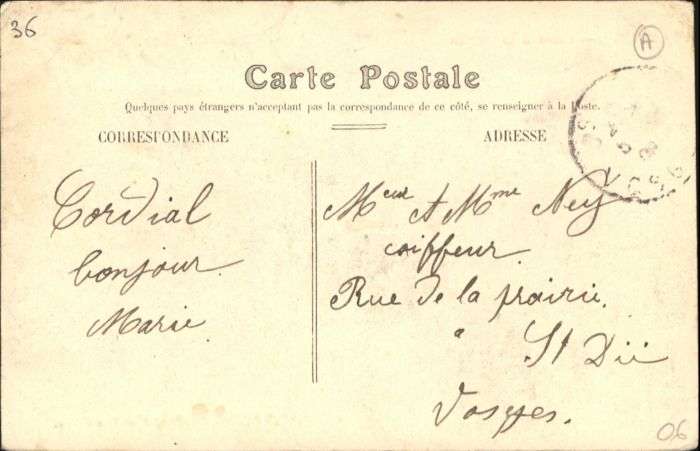 36
A
Carte Postale
Quelques pays étrangers n'acceptant pas la correspondance de ce côté, se renseigner à la Poste.
CORRESPONDANCE
ADRESSE
Cordial
bonjour
Marie
Meur & Mme Ney
coiffeur.
Rue de la prairie.
à St Dié
Vosges.
06